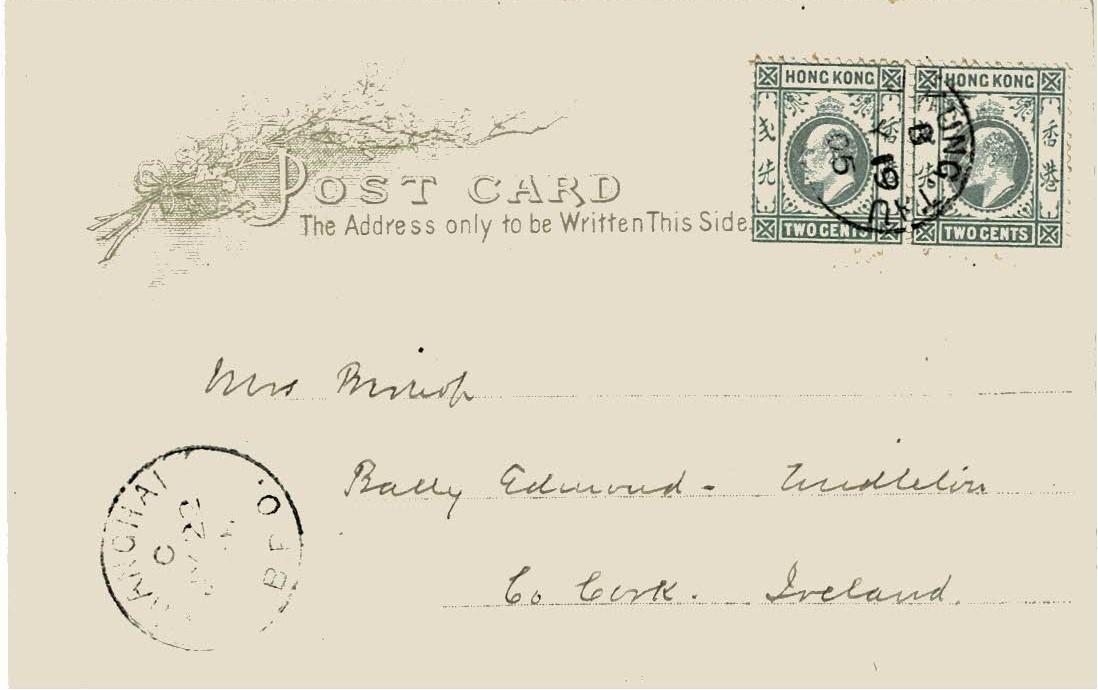 HONG KONG
HONG KONG
弍先
香港
TWO CENTS
TWO CENTS
B
19
05
POST CARD
The Address only to be Written This Side
Mrs
Bally Edmond - Middleton
Co Cork. Ireland.
SHANGHAI
B.P.O.
C
22